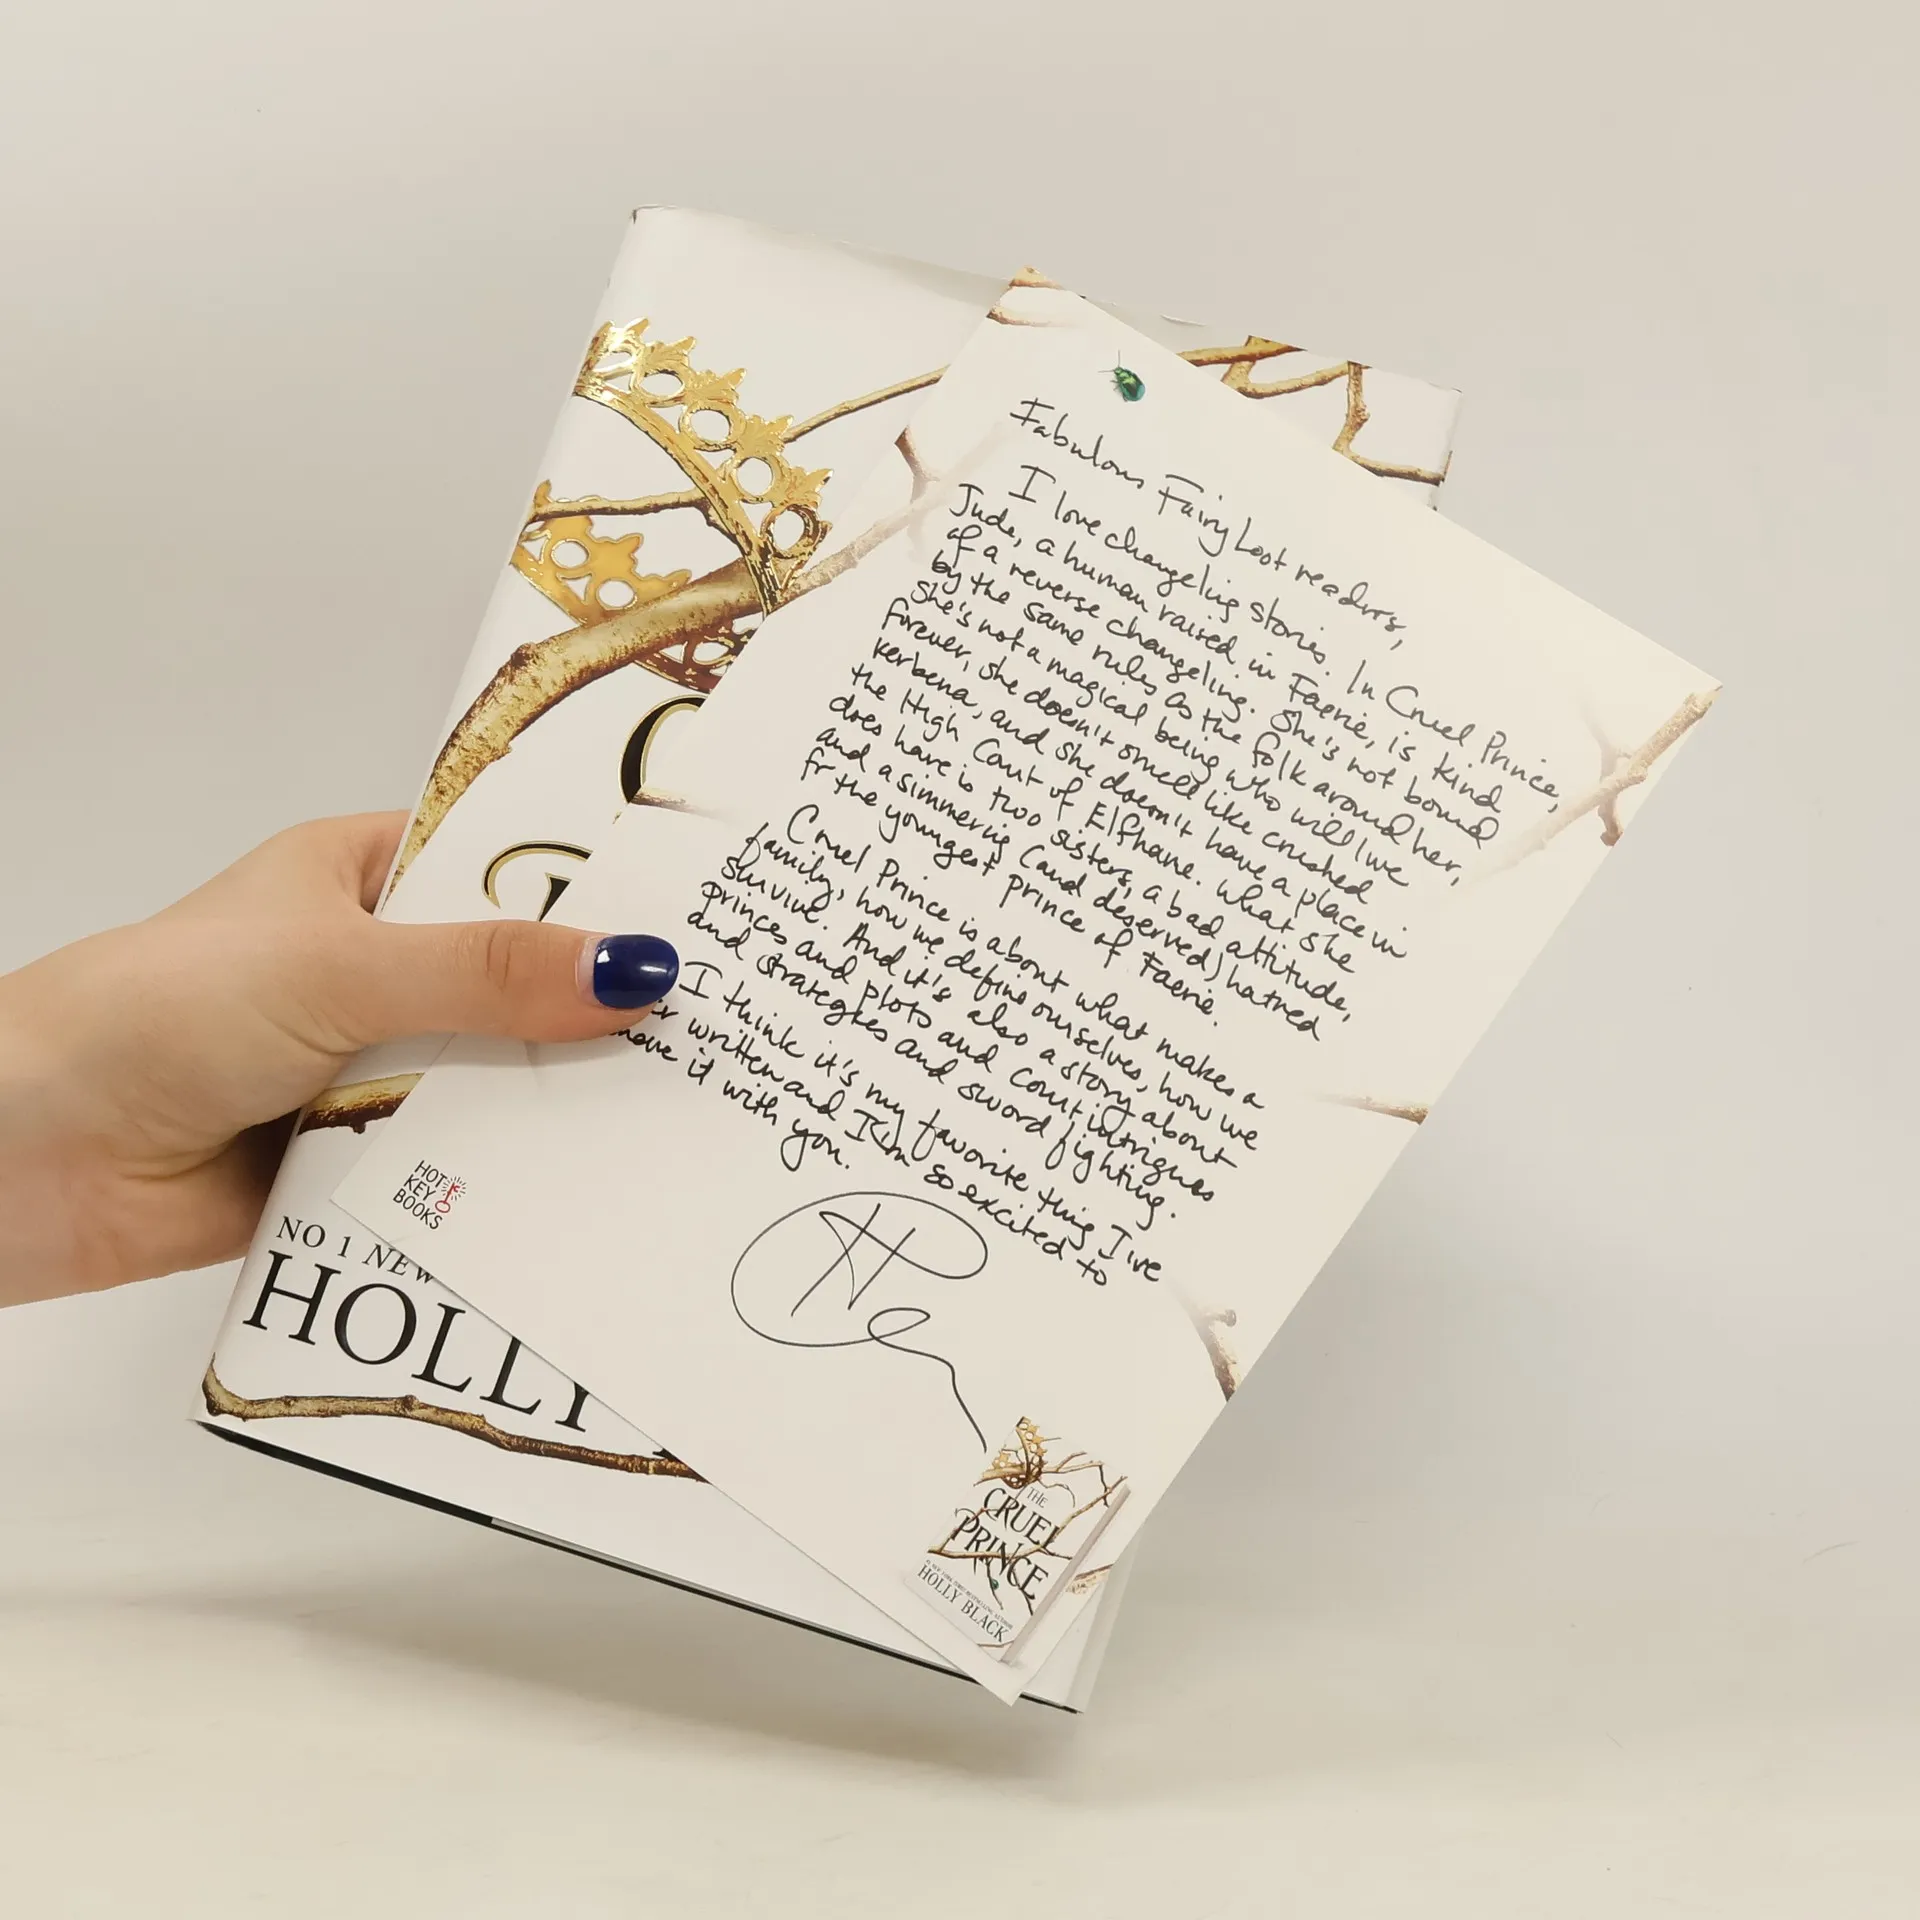 Fabulous FairyLoot readers,
I love changeling stories. In Cruel Prince,
Jude, a human raised in Faerie, is kind
of a reverse changeling. She's not bound
by the same rules as the folk around her,
she's not a magical being who will live
forever, she doesn't smell like crushed
verbena, and she doesn't have a place in
the High Court of Elfhane. What she
does have is two sisters, a bad attitude,
and a simmering (and deserved) hatred
for the youngest prince of Faerie.
Cruel Prince is about what makes a
family, how we define ourselves, how we
survive. And it's also a story about
princes and plots and court intrigues
and strategies and sword fighting.
I think it's my favorite thing I've
written and I'm so excited to
it with you.
HOT
KEY
BOOKS
NO 1 NEW
HOLLY
THE
CRUEL
PRINCE
#1 NEW YORK TIMES BESTSELLING AUTHOR
HOLLY BLACK